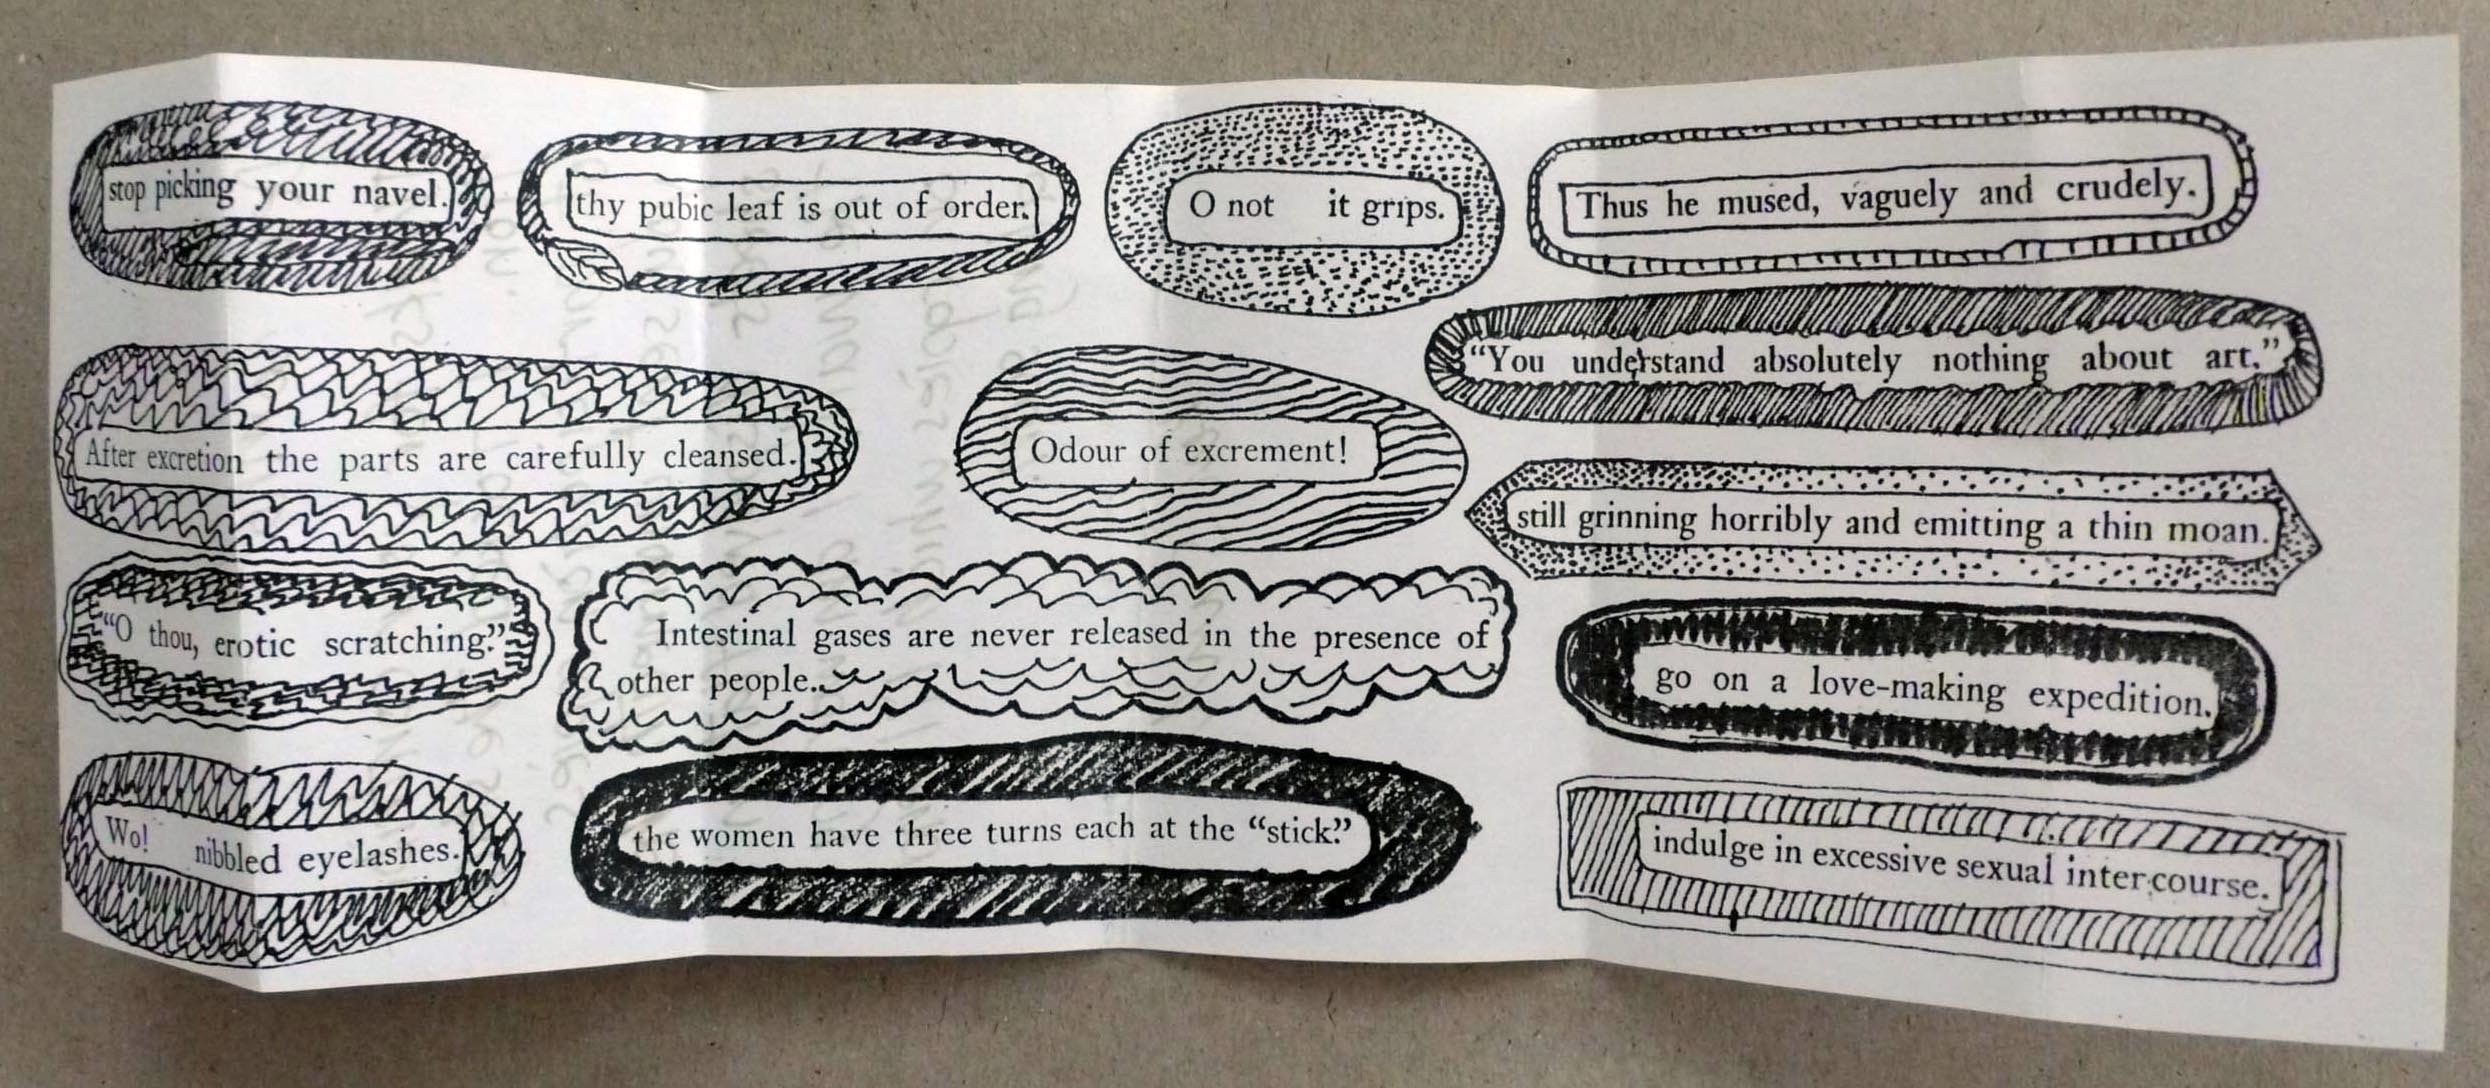 stop picking your navel.
thy pubic leaf is out of order.
O not it grips.
Thus he mused, vaguely and crudely.
"You understand absolutely nothing about art."
After excretion the parts are carefully cleansed.
Odour of excrement!
still grinning horribly and emitting a thin moan.
"O thou, erotic scratching."
Intestinal gases are never released in the presence of
other people.
go on a love-making expedition.
Wo! nibbled eyelashes.
the women have three turns each at the "stick."
indulge in excessive sexual intercourse.